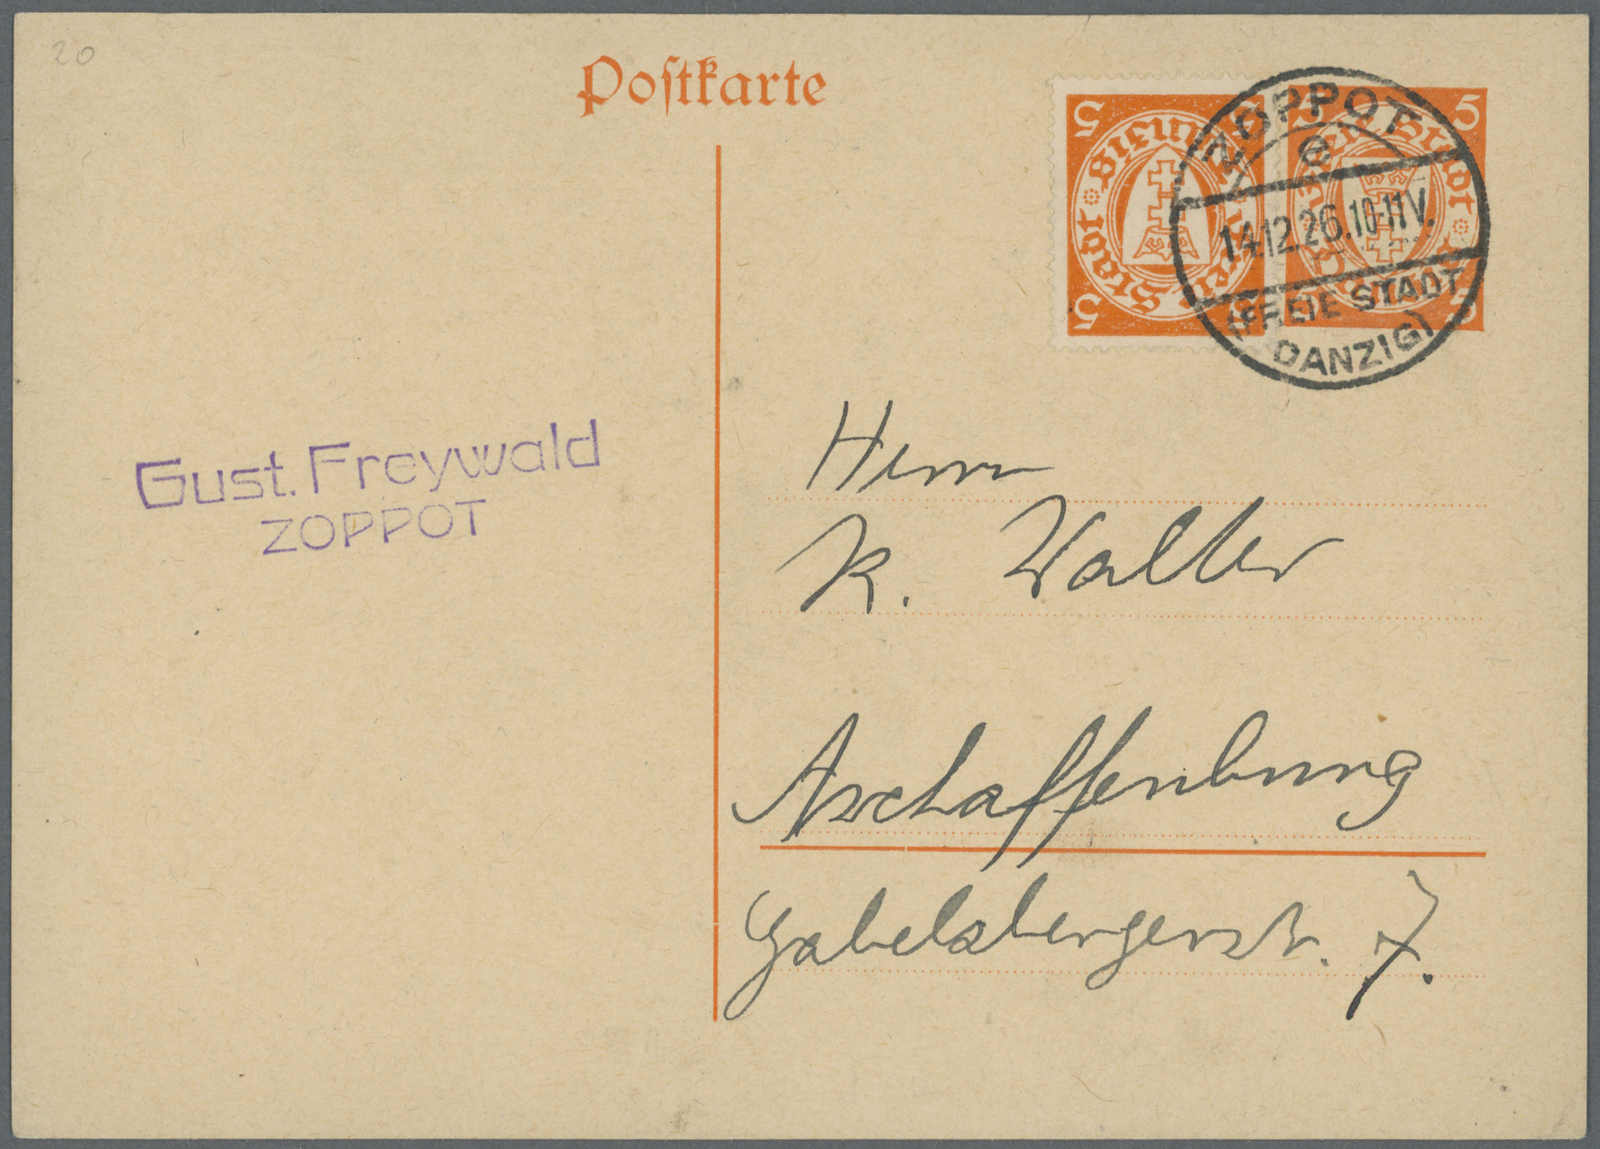 20
Poſtkarte
5 5
Freie Stadt Danzig
5 5
ZOPPOT
e
14.12.26.10-11V.
(FREIE STADT
DANZIG)
Gust. Freywald
ZOPPOT
Herrn
K. Walter
Aschaffenburg
Gabelsbergerstr. 7.